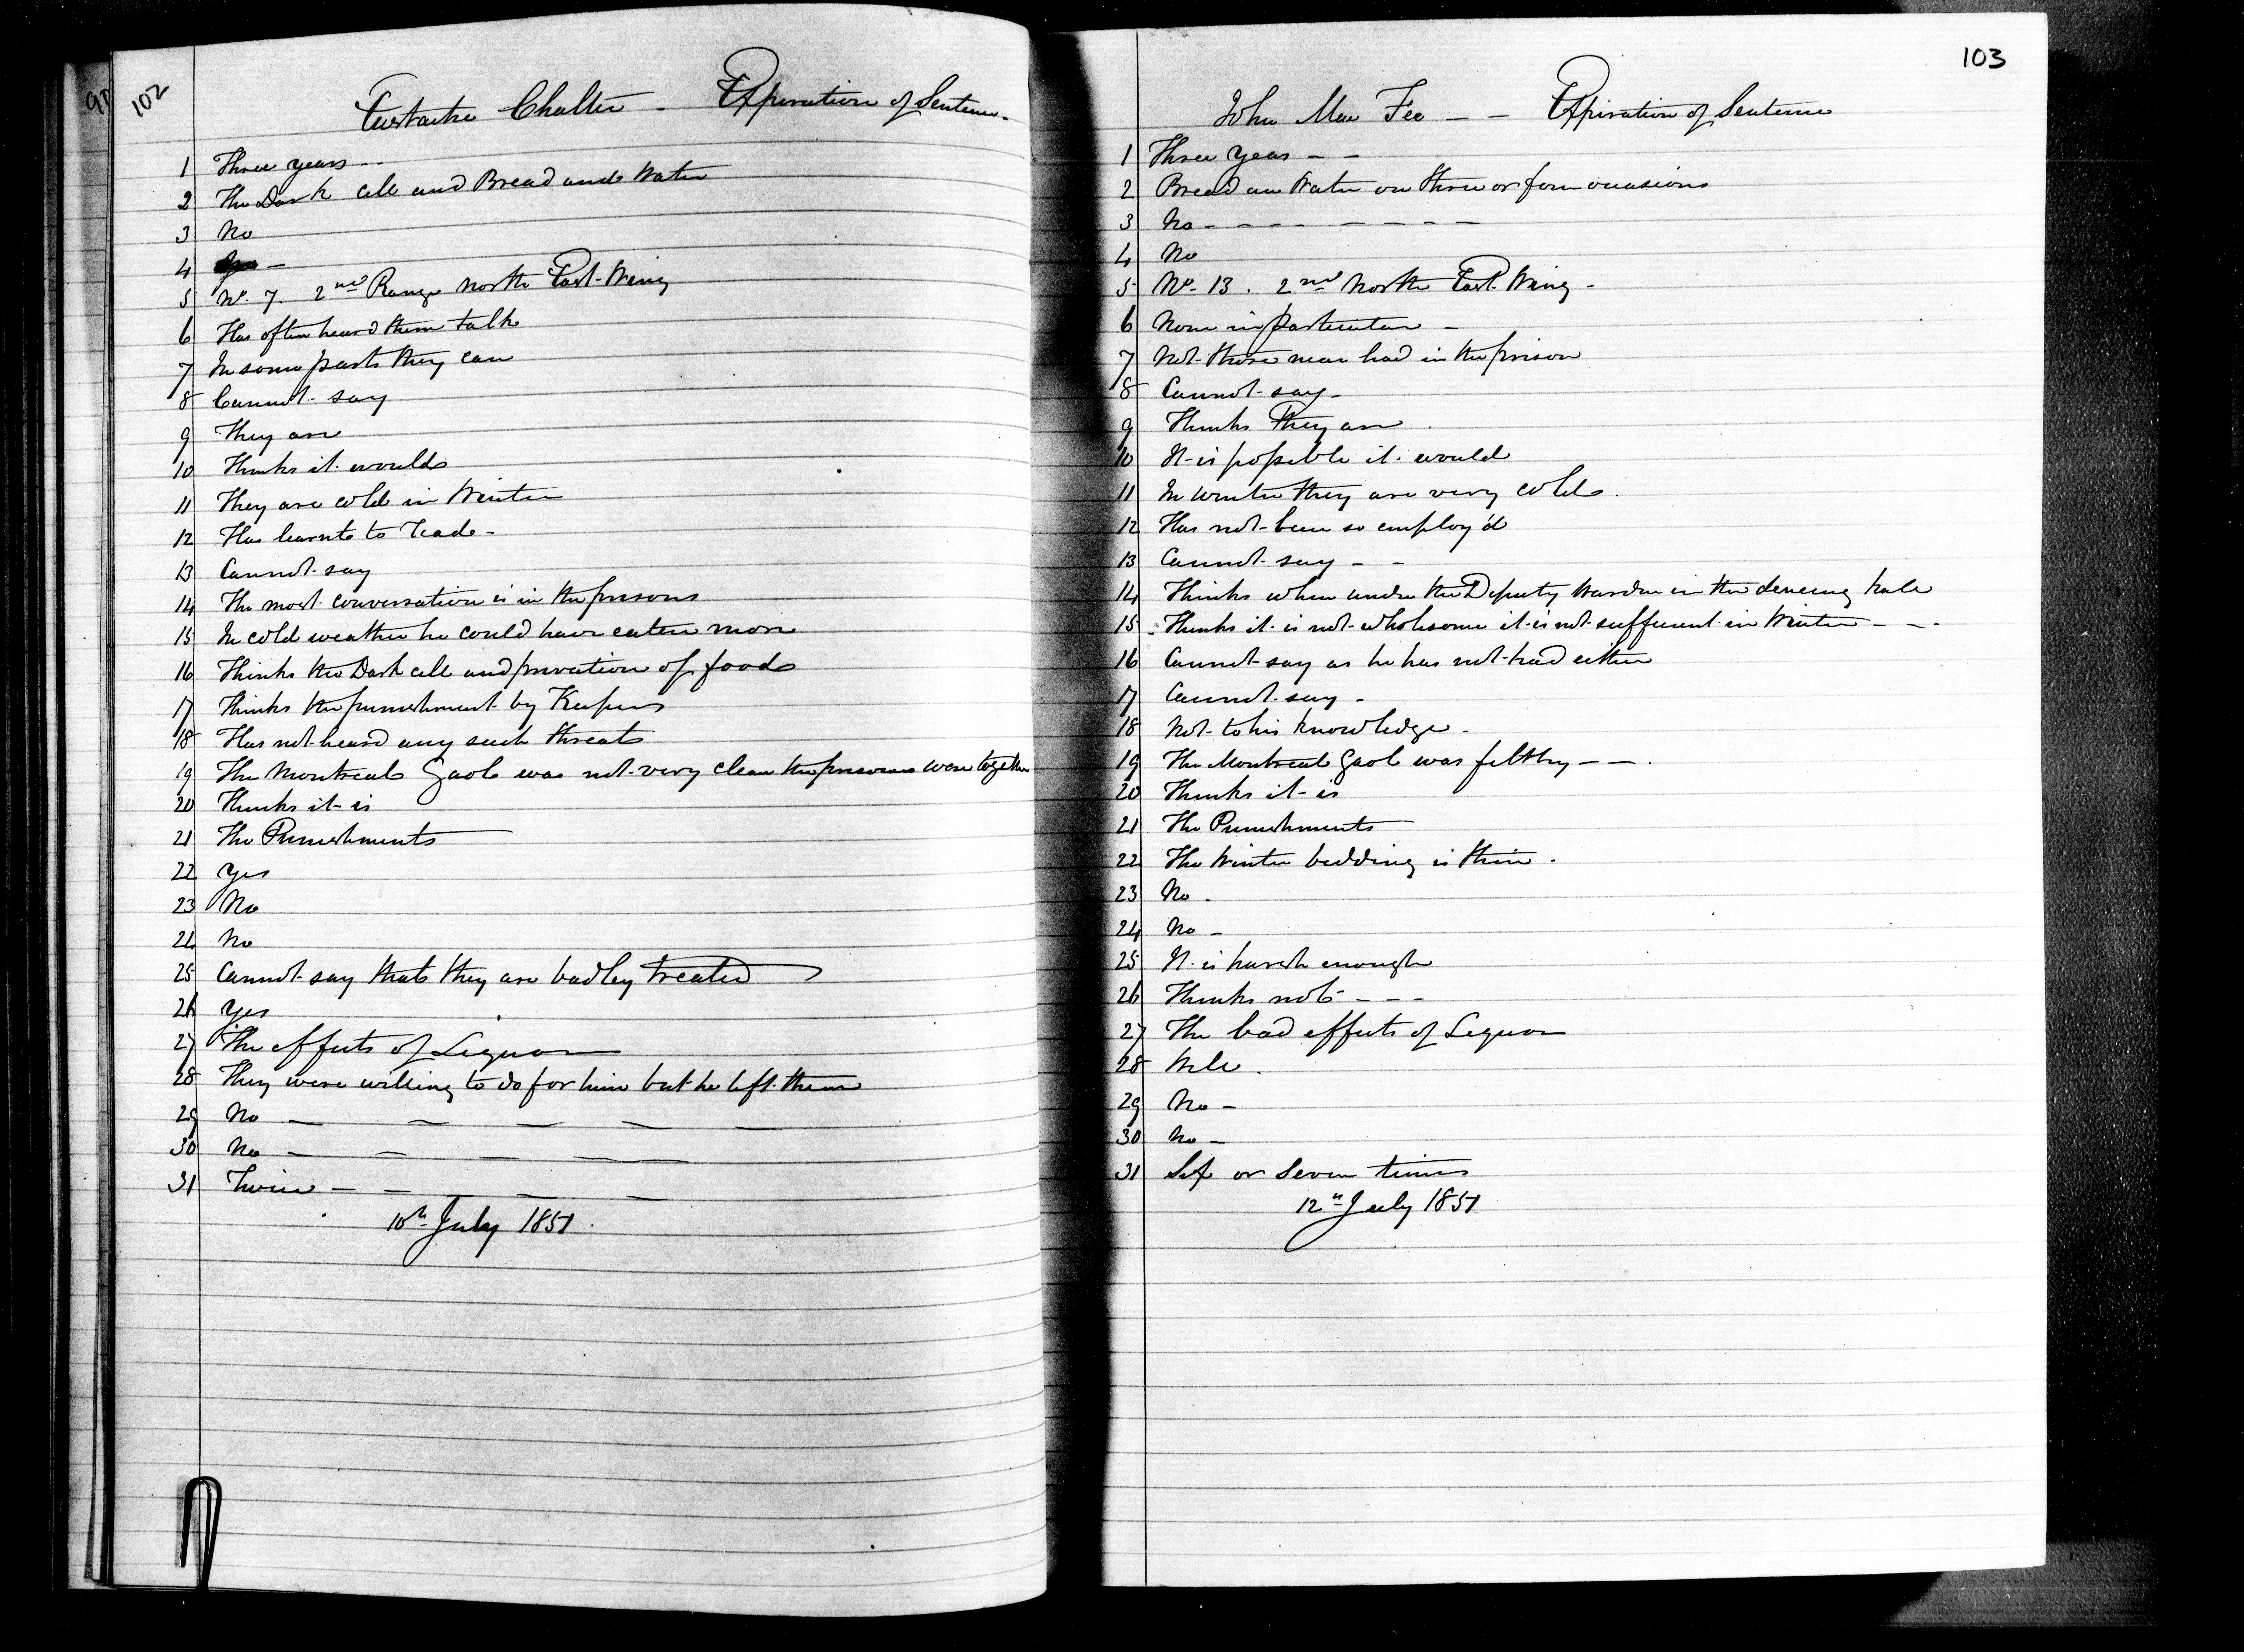 102
Eustache Chalter - Expiration of Sentence.
1 Three years - -
2 The Dark cell and Bread and Water
3 No
4 -
5 No. 7. 2nd Range North East Wing
6 Has often heard them talk
7 In some parts they can
8 Cannot say
9 They are
10 Thinks it would
11 They are cold in Winter
12 Has learnt to Trade -
13 Cannot say
14 The most conversation is in the prisons
15 In cold weather he could have eaten more
16 Thinks the Dark cell and privation of food
17 Thinks the punishment by Keepers
18 Has not heard any such threats
19 The Montreal Gaol was not very clean the prisoners were together
20 Thinks it is
21 The Punishments
22 Yes
23 No
24 No
25 Cannot say that they are badley treated
26 Yes
27 The effects of Liquor
28 They were willing to do for him but he left them
29 No — — — — —
30 No — — — — —
31 Twice — — — —
10th July 1851.
103
John Mac Fee - - Expiration of Sentence
1 Three years - -
2 Bread an Water on three or four occasions
3 No - - - - - - - -
4 No
5 No. 13. 2nd North East Wing -
6 None in particular -
7 Not those near had in the prison
8 Cannot say -
9 Thinks They are .
10 It is possible it would
11 In winter they are very cold.
12 Has not been so employ'd
13 Cannot say - -
14 Thinks when under the Deputy Warden in the
15 - Thinks it is not wholesome it is not sufficient in Winter - - -
16 Cannot say as he has not had either
17 Cannot say -
18 Not to his knowledge -
19 The Montreal Gaol was filthy - - .
20 Thinks it is
21 The Punishments
22 The Winter bedding is thin .
23 No .
24 No -
25 It is harsh enough
26 Thinks not - - -
27 The bad effects of Liquor
28 Well .
29 No -
30 No -
31 Six or Seven times
12th July 1851